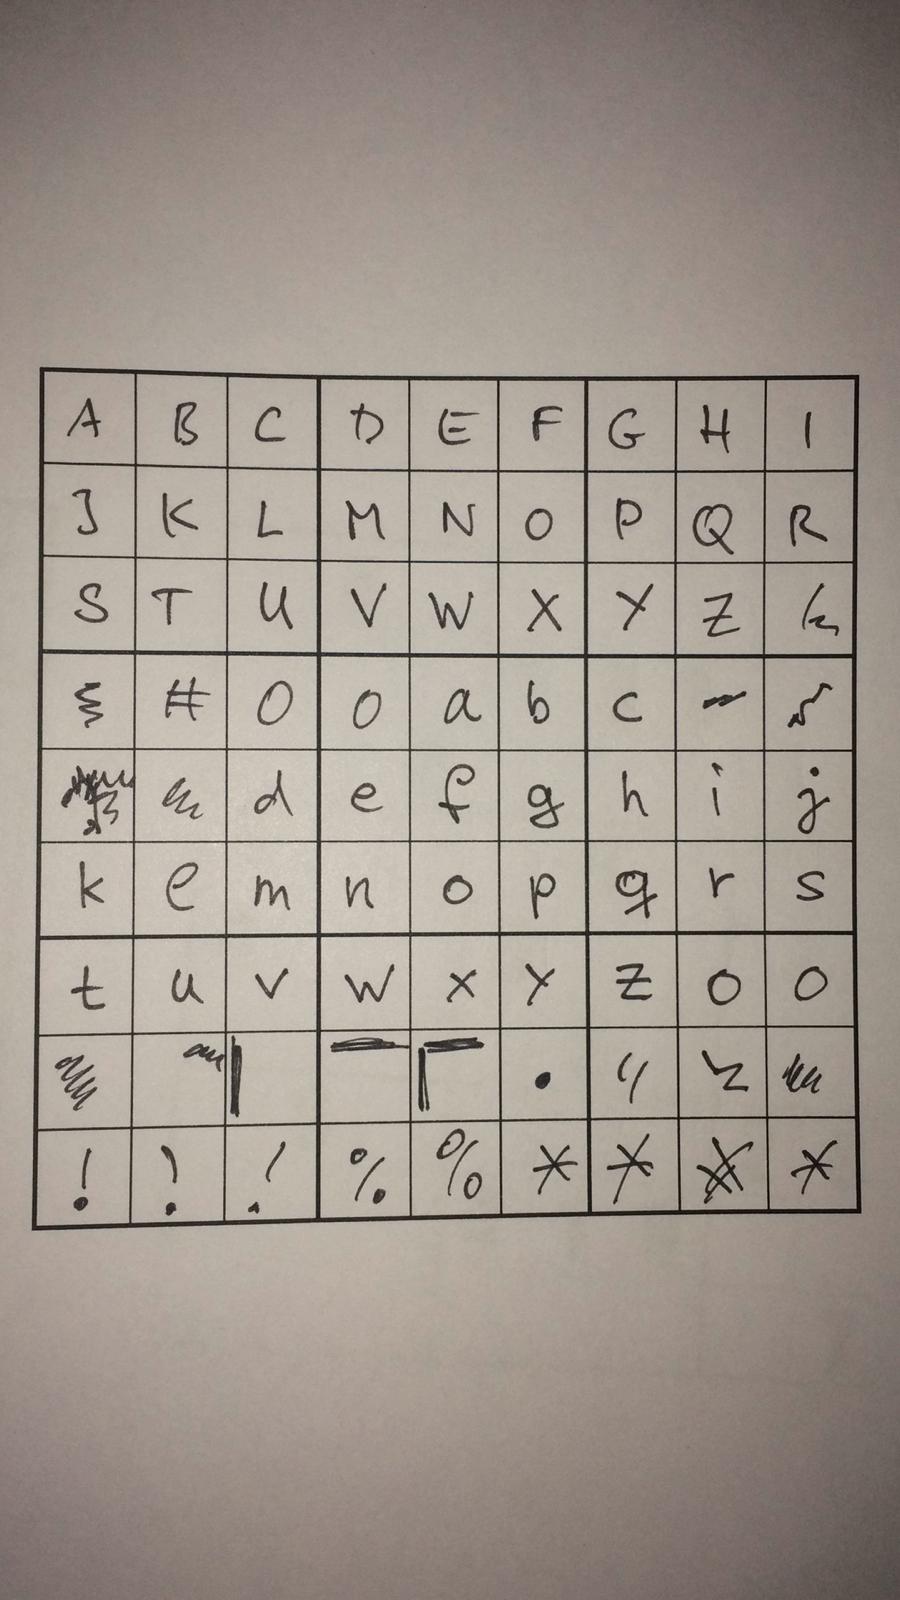 A B C D E F G H I
J K L M N O P Q R
S T U V W X Y Z
# O o a b c -
d e f g h i j
k l m n o p q r s
t u v w x y z o o
.
! ! ! % % * * * *